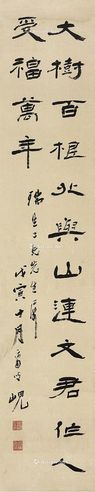 大樹百根北與山連文君作人
受福萬年
瑞生仁兄先生屬
戊寅十月 峴